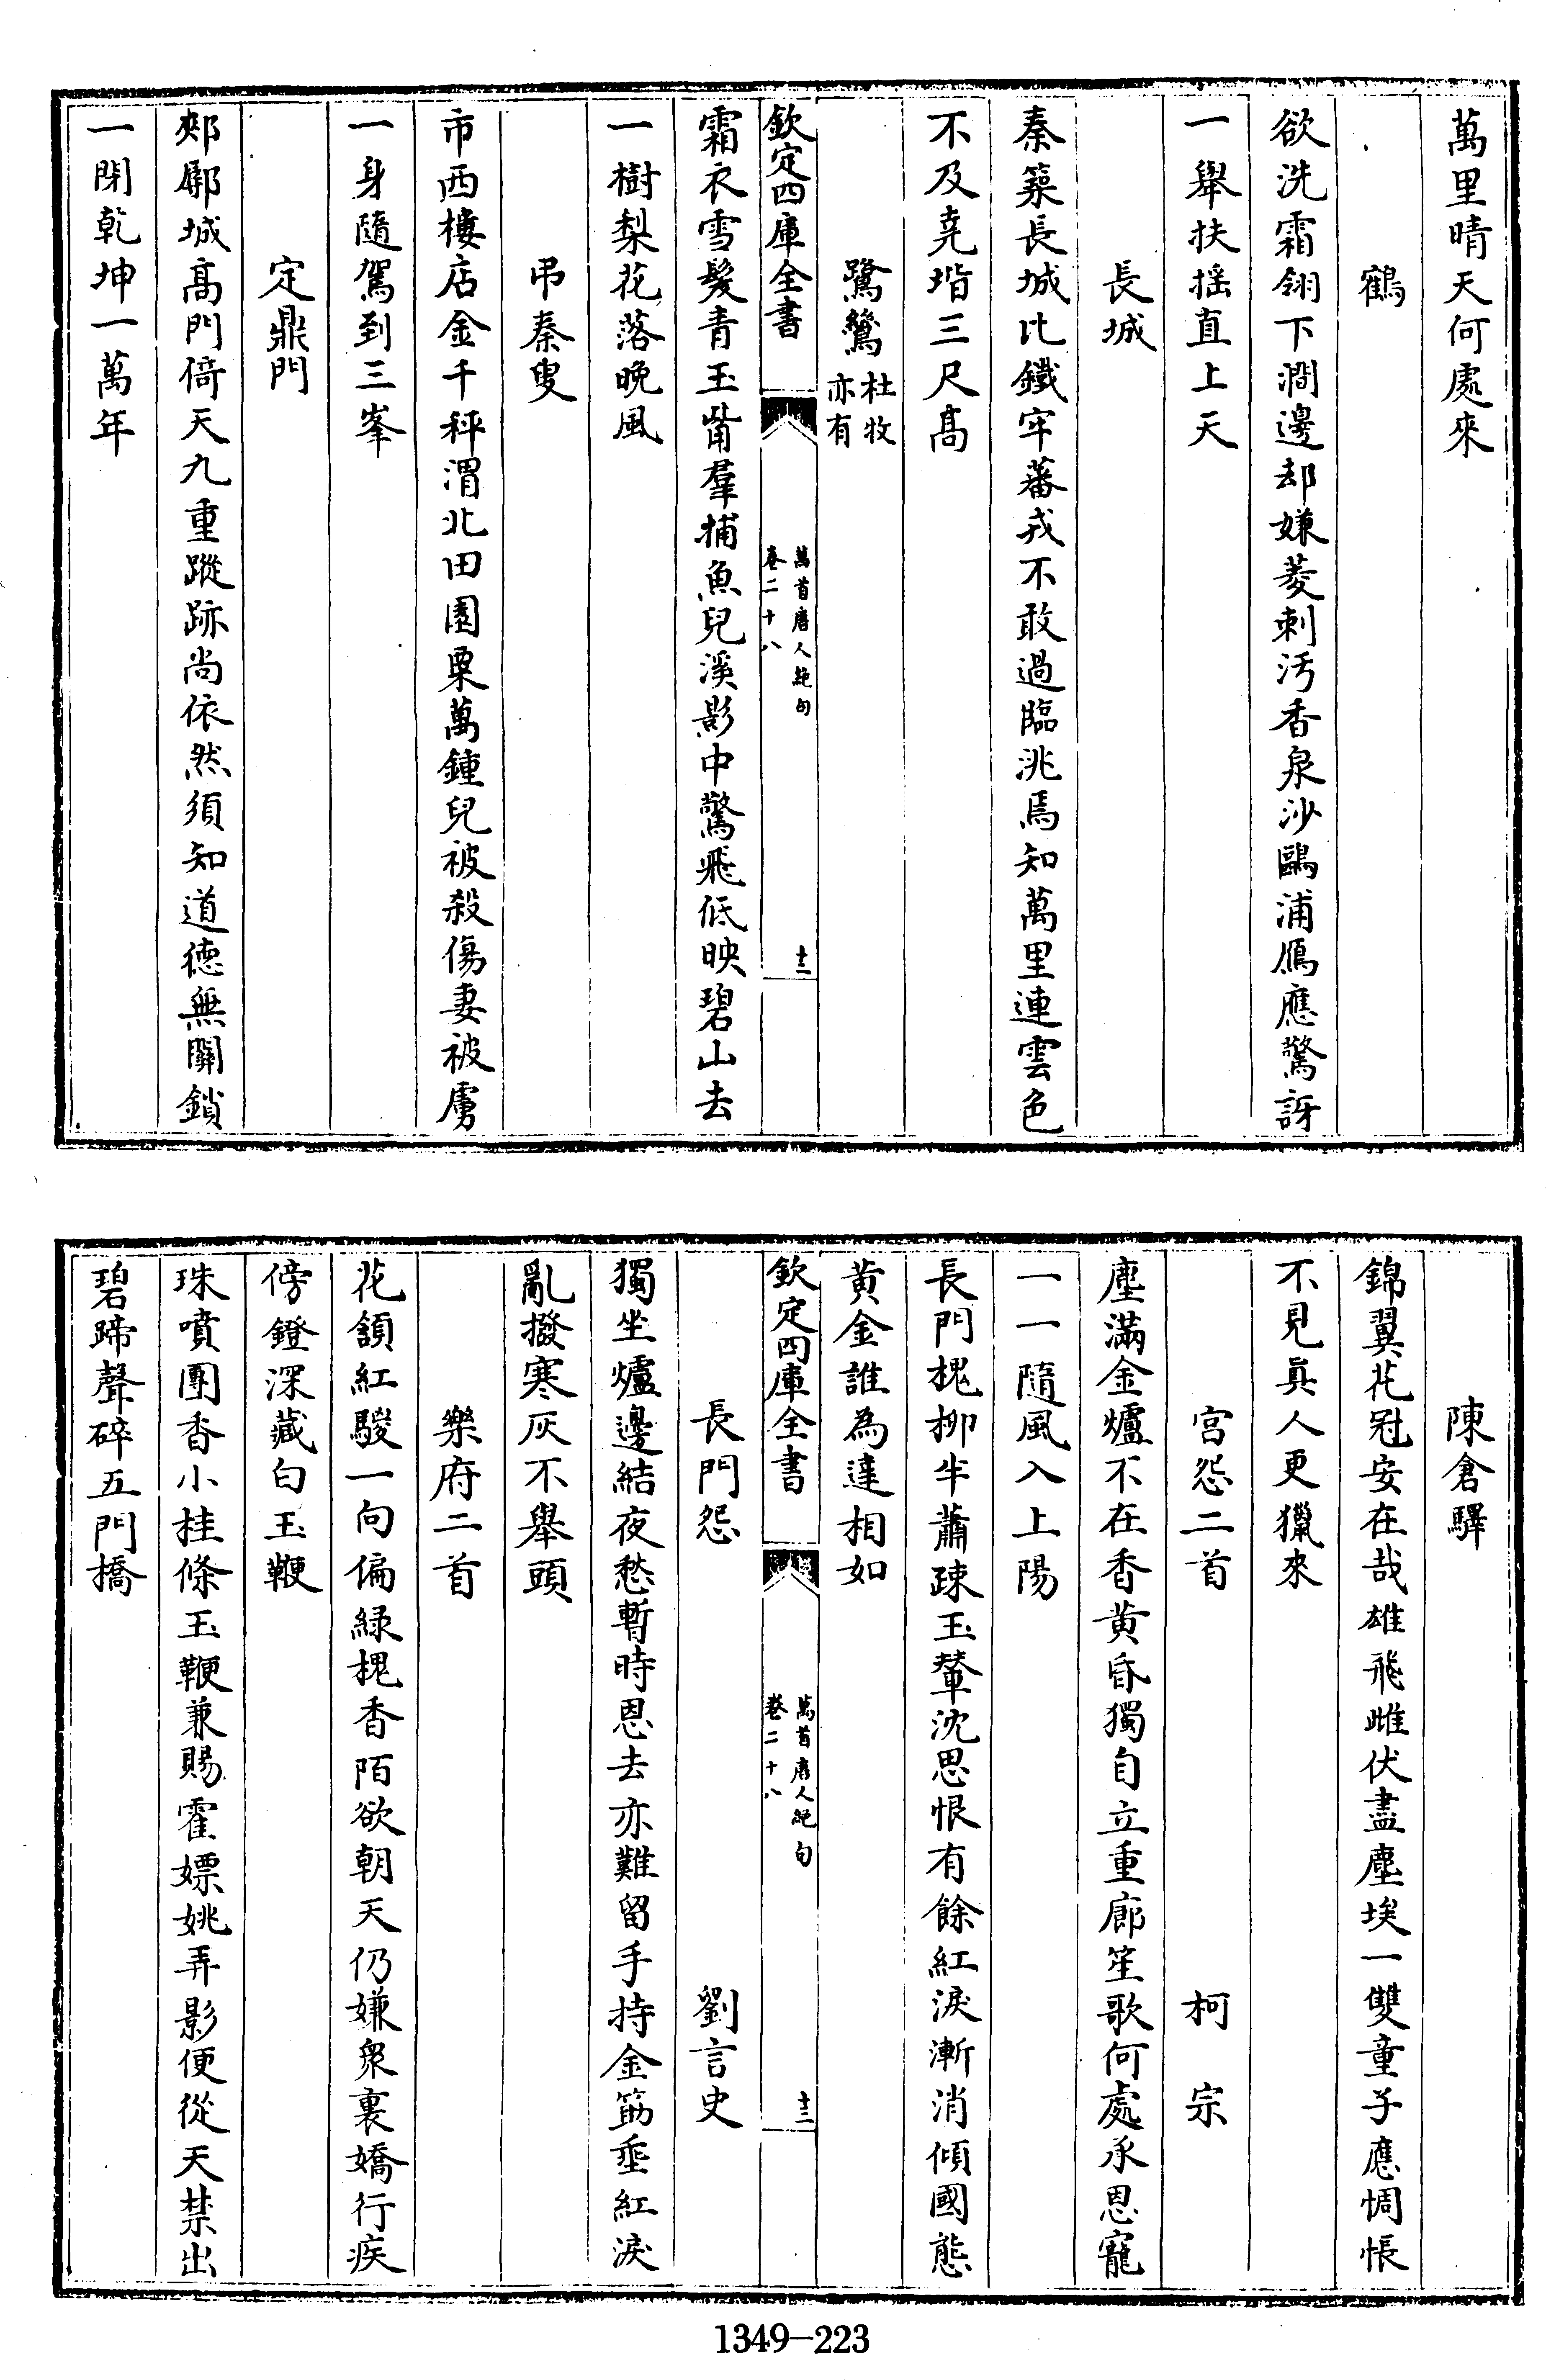 萬里晴天何處來
鶴
欲洗霜翎下澗邊却嫌菱刺汚香泉沙鷗浦鴈應驚訝
一舉扶揺直上天
長城
秦築長城比鐵牢蕃戎不敢過臨洮焉知萬里連雲色
不及堯堦三尺髙
鷺鷥杜牧亦有
欽定四庫全書
萬首唐人絶句
卷二十八
十二
霜衣雪髮青玉觜羣捕魚兒溪影中驚飛低映碧山去
一樹梨花落晚風
弔秦叟
市西樓店金千秤渭北田園粟萬鍾兒被殺傷妻被虜
一身隨駕到三峯
定鼎門
郟鄏城髙門倚天九重蹤跡尚依然須知道德無闗鎖
一閉乾坤一萬年
陳倉驛
錦翼花冠安在哉雄飛雌伏盡塵埃一雙童子應惆悵
不見真人更獵來
宫怨二首 柯宗
塵滿金爐不在香黄昏獨自立重廊笙歌何處承恩寵
一一隨風入上陽
長門槐柳半蕭疎玉輦沈思恨有餘紅淚漸消傾國態
黄金誰為達相如
欽定四庫全書
萬首唐人絶句
卷二十八
十三
長門怨 劉言史
獨坐爐邊結夜愁暫時恩去亦難留手持金筯垂紅淚
亂撥寒灰不舉頭
樂府二首
花額紅騣一向偏緑槐香陌欲朝天仍嫌衆裏嬌行疾
傍鐙深藏白玉鞭
珠噴團香小桂條玉鞭兼賜霍嫖姚弄影便從天禁出
碧蹄聲碎五門橋
1349-223